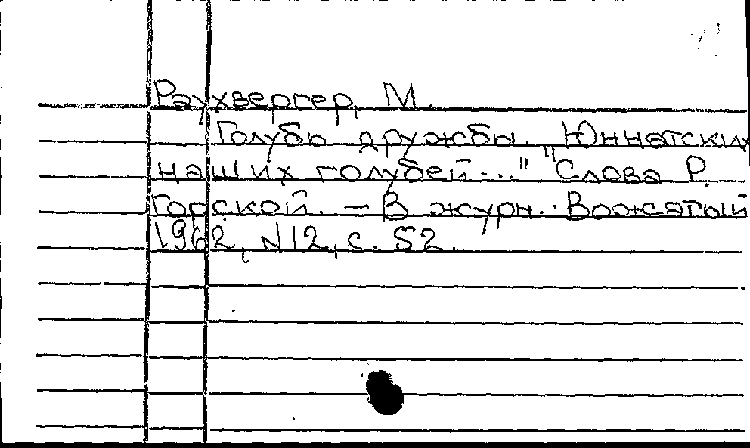 Раухвергер, М.
Голубь дружбы. Юннатский
наших голубей..." "Слова Р.
Горской. – В журн.: Вожатый
1962, N12, с. 52.